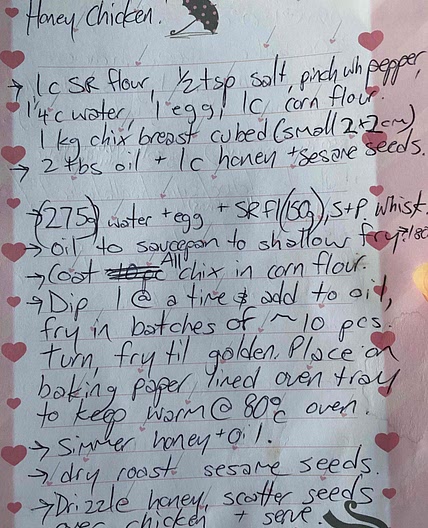 Honey Chicken.
→ 1c SR flour, ½tsp salt, pinch wh pepper,
1¼c water, 1 egg, 1c corn flour.
1 kg chix breast cubed (small 2x2cm)
→ 2 tbs oil + 1c honey + sesame seeds.
→ (275g) water + egg + SR fl (150g), S+P. Whisk.
→ oil to saucepan to shallow fry ~180
→ Coat All chix in corn flour.
→ Dip 1 @ a time & add to oil,
fry in batches of ~ 10 pcs.
Turn, fry til golden. Place on
baking paper lined oven tray
to keep warm @ 80°c oven.
→ Simmer honey + oil.
→ dry roast sesame seeds.
→ Drizzle honey, scatter seeds
over chicken + serve